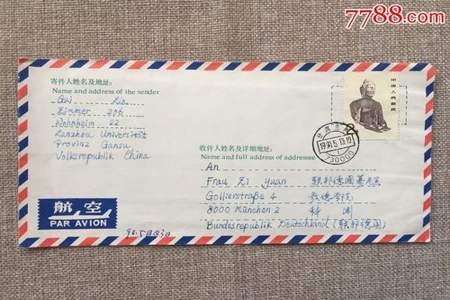 7788.com
寄件人姓名及地址:
Name and address of the sender
Zimmer 206
Wohnheim 22
Lanzhou Universität
Provinz Gansu
Volksrepublik China
中国人民邮政
1990.5.13.
730000
收件人姓名及详细地址:
Name and full address of addressee
An
Frau Zi Yuan 联邦德国慕尼黑
Gollierstraße 4 歌德学院
8000 München 2
Bundesrepublik Deutschland (联邦德国)
航空
PAR AVION